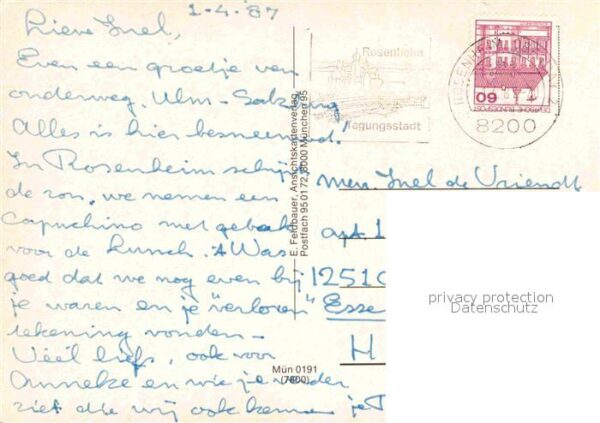 1-4-87
Lieve Inel,
Even een groetje van
onderweg, Ulm-Salzburg
Alles is hier besneeuwd.
In Rosenheim schijnt
de zon, we nemen een
Capuchino met gebak
voor de Lunch. Was
goed dat we nog even bij
je waren en je "verloren"
rekening vonden-
Veel liefs, ook voor
Anneke en wie je verder
ziet alle wij ook kennen
E. Feldbauer, Ansichtskartenverlag
Postfach 950172, 8000 München 95
Mün 0191
(7600)
Rosenheim
Tagungsstadt
8200
60
DEUTSCHE BUNDESPOST
Mevr. Inel de Vriendt
apt 1
1251
Esse
H
privacy protection
Datenschutz